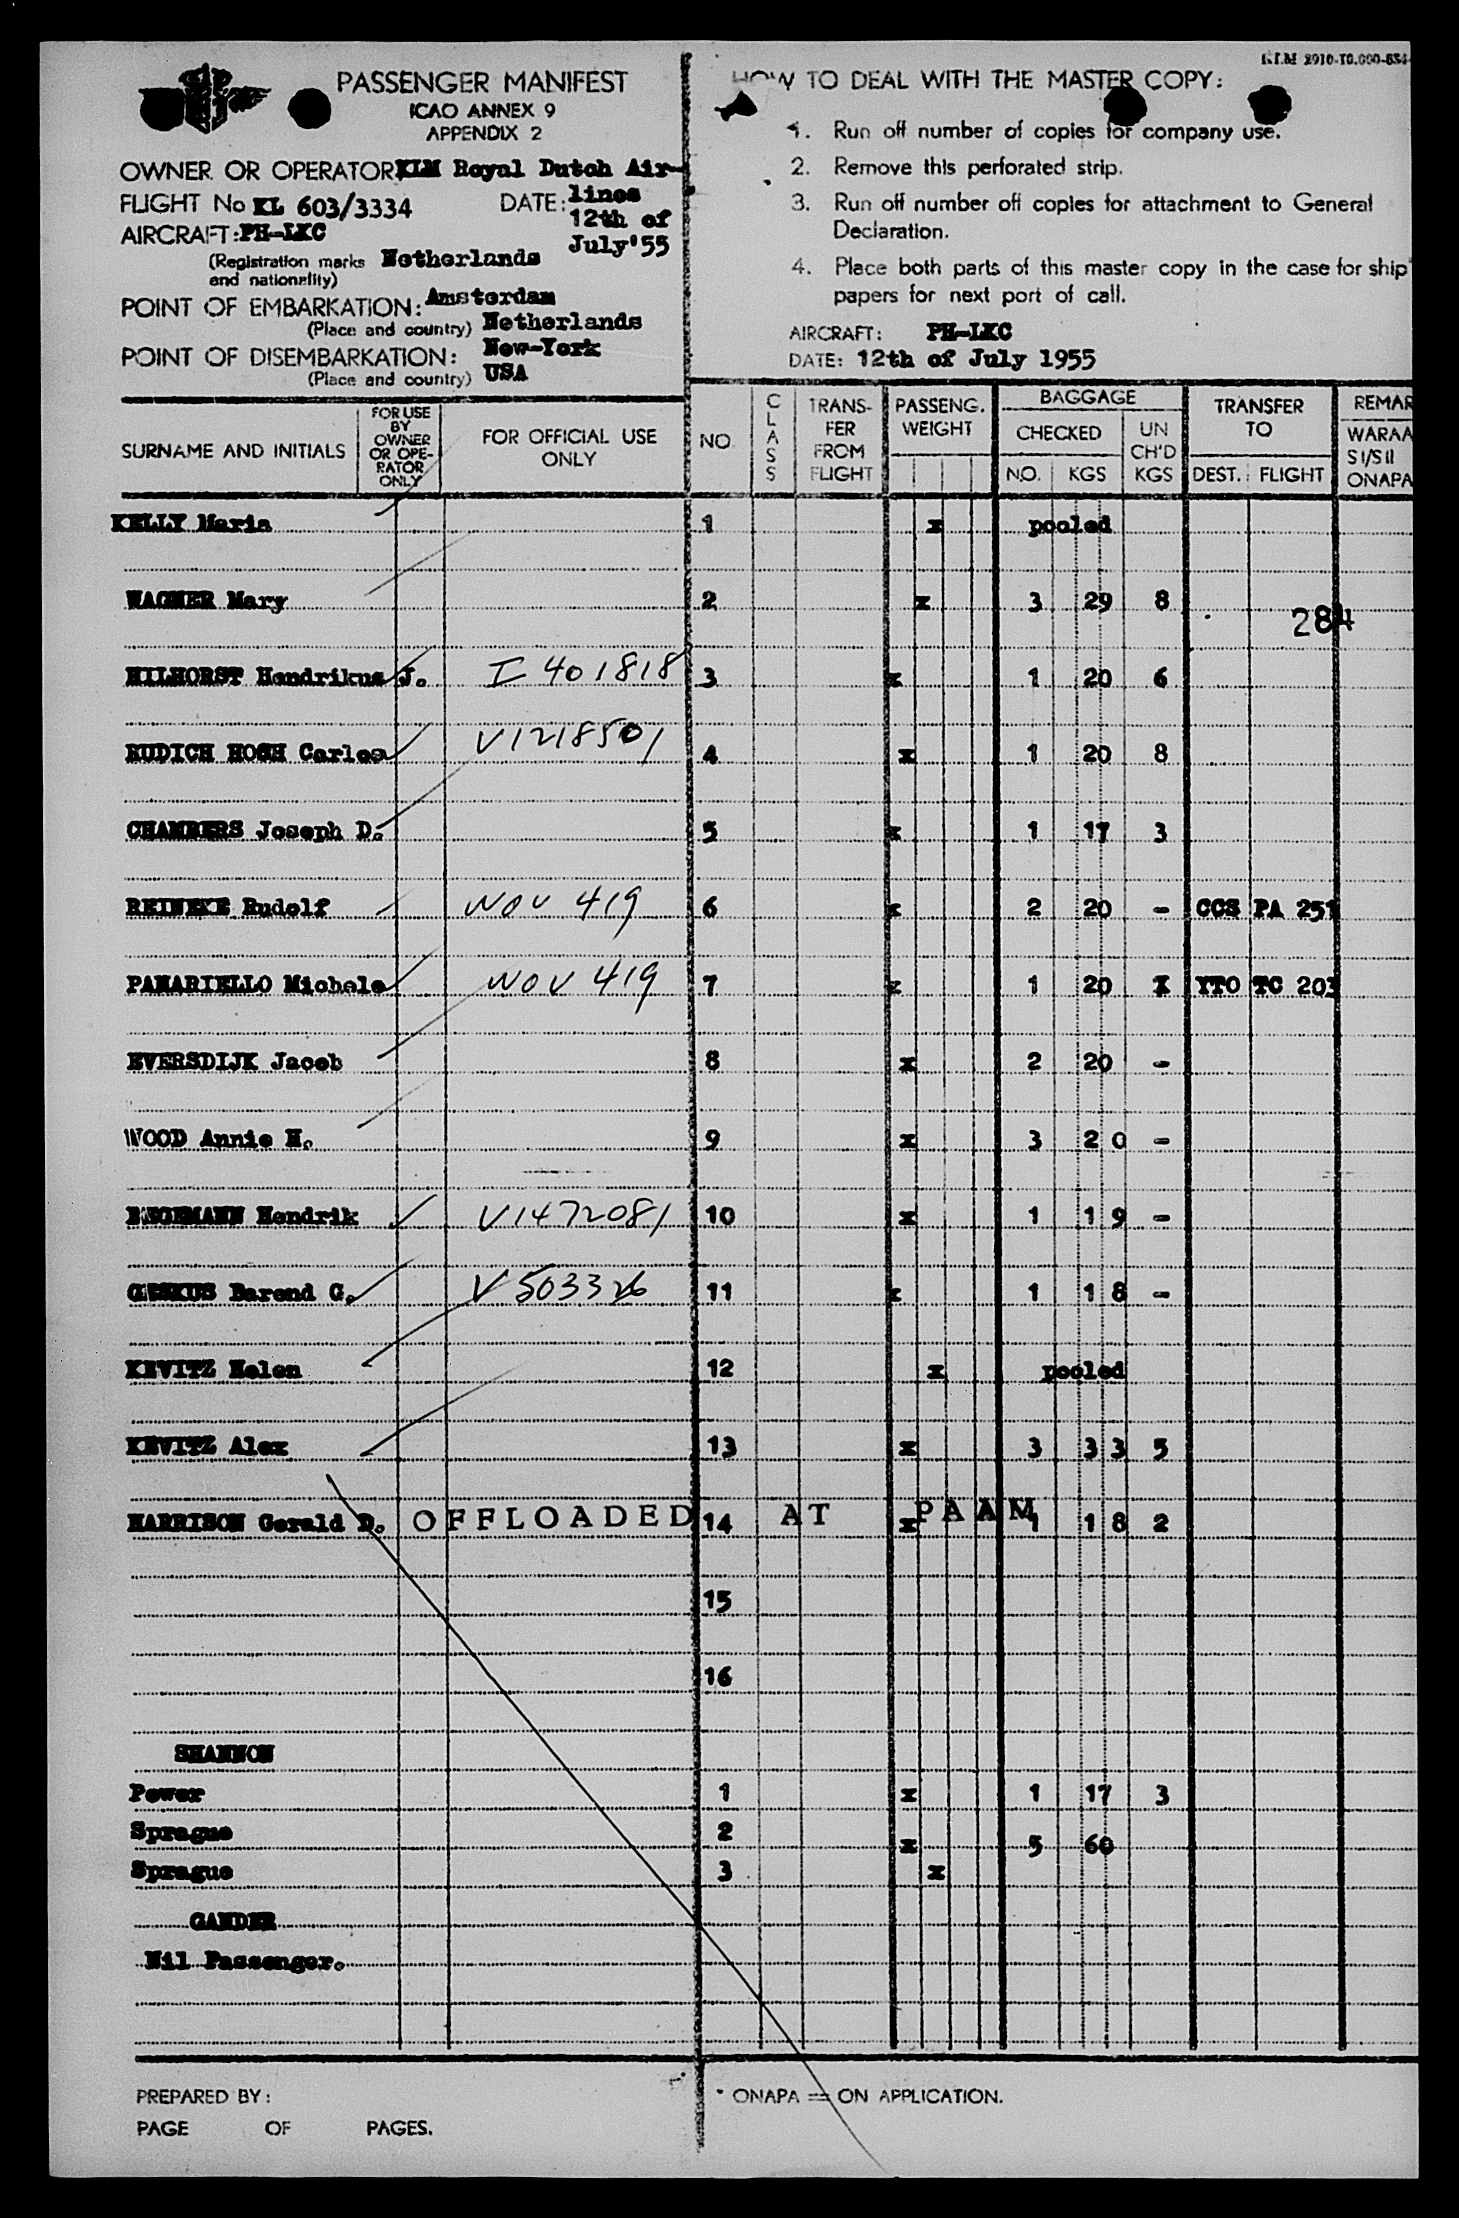 KLM 2910-10.000-654
PASSENGER MANIFEST
ICAO ANNEX 9
APPENDIX 2
OWNER OR OPERATOR: KLM Royal Dutch Air-
lines
FLIGHT No KL 603/3334 DATE: 12th of
July'55
AIRCRAFT: PH-LKC
(Registration marks and nationality) Netherlands
POINT OF EMBARKATION: Amsterdam
(Place and country) Netherlands
POINT OF DISEMBARKATION: New-York
(Place and country) USA
HOW TO DEAL WITH THE MASTER COPY:
1. Run off number of copies for company use.
2. Remove this perforated strip.
3. Run off number off copies for attachment to General
Declaration.
4. Place both parts of this master copy in the case for ship'
papers for next port of call.
AIRCRAFT: PH-LKC
DATE: 12th of July 1955
SURNAME AND INITIALS
FOR USE BY OWNER OR OPE-RATOR ONLY
FOR OFFICIAL USE ONLY
NO.
CLASS
TRANS-FER FROM FLIGHT
PASSENG. WEIGHT
BAGGAGE
CHECKED
NO. KGS
UN CH'D KGS
TRANSFER TO
DEST. FLIGHT
REMAR
WARAA
SI/SII
ONAPA
KELLY Maria 1 x pooled
WAGNER Mary 2 x 3 29 8
284
HILHORST Hendrikus J. I 401818 3 x 1 20 6
RUDICH HOSH Carlos V1218501 4 x 1 20 8
CHAMBERS Joseph D. 5 x 1 17 3
REINEKE Rudolf NOV 419 6 x 2 20 - CCS PA 251
PANARIELLO Michele NOV 419 7 x 1 20 X YTO TC 203
EVERSDIJK Jacob 8 x 2 20 -
WOOD Annie H. 9 x 3 20 -
BEGEMANN Hendrik V1472081 10 x 1 19 -
GESKUS Barend G. V 503326 11 x 1 18 -
KEVITZ Helen 12 x pooled
KEVITZ Alex 13 x 3 33 5
HARRISON Gerald D. OFFLOADED 14 AT x PAAM 1 18 2
15
16
SHANNON
Power 1 x 1 17 3
Sprague 2 x 5 60
Sprague 3 x
GANDER
Nil Passenger.
PREPARED BY:
PAGE OF PAGES.
* ONAPA = ON APPLICATION.